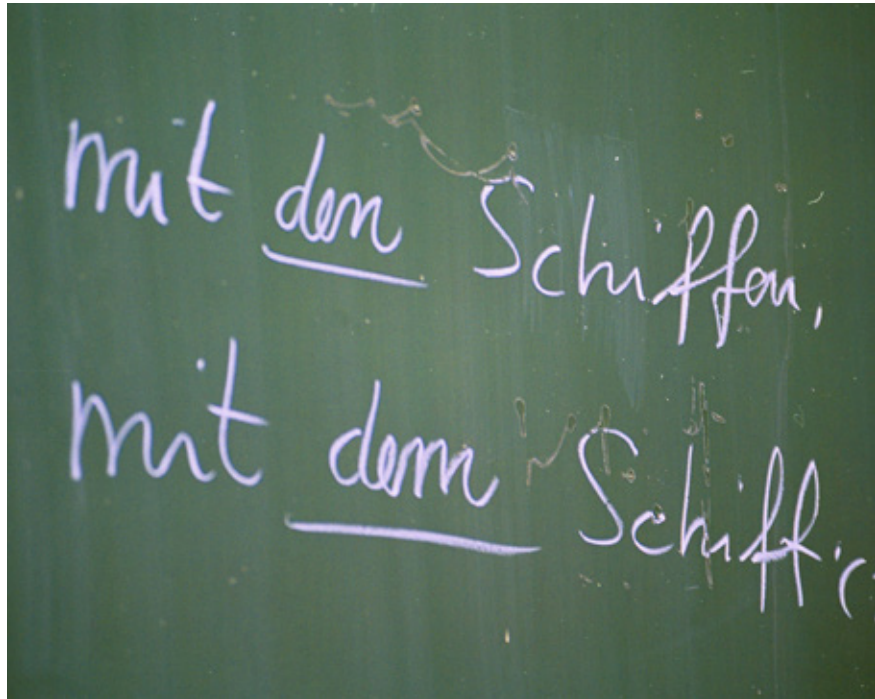 mit den Schiffen,
mit dem Schiff.